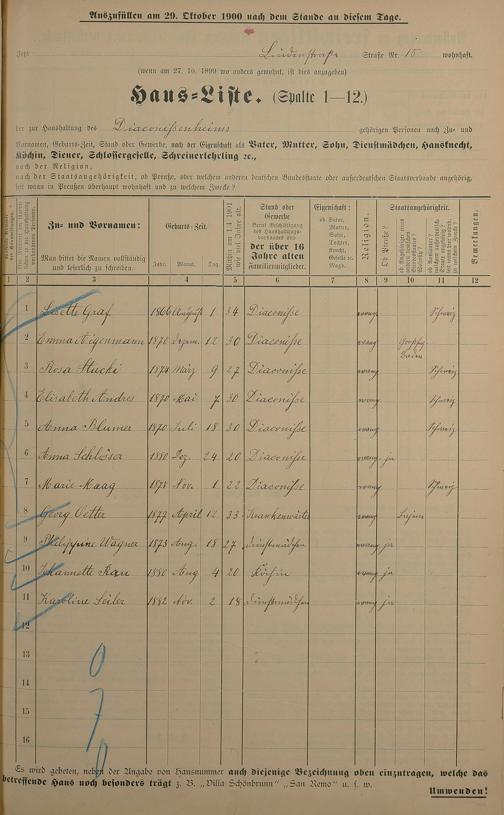 Auszufüllen am 29. Oktober 1900 nach dem Stande an diesem Tage.
Jetzt Lindenstraße Straße Nr. 15 wohnhaft.
(wenn am 27. 10. 1899 wo anders gewohnt, ist dies anzugeben)
Haus-Liste. (Spalte 1—12.)
der zur Haushaltung des Diaconissenheims gehörigen Personen nach Zu- und
Vornamen, Geburts-Zeit, Stand oder Gewerbe, nach der Eigenschaft als Vater, Mutter, Sohn, Dienstmädchen, Hausknecht,
Köchin, Diener, Schlossergeselle, Schreinerlehrling ꝛc.,
nach der Religion,
nach der Staatsangehörigkeit, ob Preuße, oder welchem anderen deutschen Bundesstaate oder außerdeutschen Staatsverbande angehörig,
seit wann in Preußen überhaupt wohnhaft und zu welchem Zwecke?
Zu- und Vornamen:
Man bittet die Namen vollständig und leserlich zu schreiben.
Geburts-Zeit.
Jahr. Monat. Tag.
Mithin am 1/4 1901 wie viel Jahre alt.
Stand oder Gewerbe
der über 16 Jahre alten Familienmitglieder.
Eigenschaft:
ob Vater, Mutter, Sohn, Tochter, Knecht, Geselle oder Magd.
Religion.
Staatsangehörigkeit.
Ob Preuße?
Bemerkungen.
1 2 3 4 5 6 7 8 9 10 11 12
1 Lisette Graf 1866 August 1 34 Diaconisse evang Schweiz
2 Emma Aigenmann 1870 12 30 Diaconisse evang Baden
3 Rosa Stucki 1874 März 9 27 Diaconisse evang Schweiz
4 Elisabeth Andres 1870 Mai 7 30 Diaconisse evang Schweiz
5 Anna Blumer 1870 Juli 18 30 Diaconisse evang Schweiz
6 Anna Schlösser 1880 Dez. 24 20 Diaconisse evang ja
7 Marie Maag 1878 Nov. 1 22 Diaconisse evang Schweiz
8 Georg Oetter 1877 April 12 33 Krankenwärter evang
9 Philippine Wagner 1873 Aug. 18 27 Dienstmädchen evang ja
10 Johannette Rau 1880 Aug 4 20 Köchin evang ja
11 Karoline Seiler 1882 Nov. 2 18 Dienstmädchen evang ja
12
13
14
15
16
Es wird gebeten, neben der Angabe von Hausnummer auch diejenige Bezeichnung oben einzutragen, welche das
betreffende Haus noch besonders trägt z. B. „Villa Schönbrunn" „San Remo" u. s. w.
Umwenden!